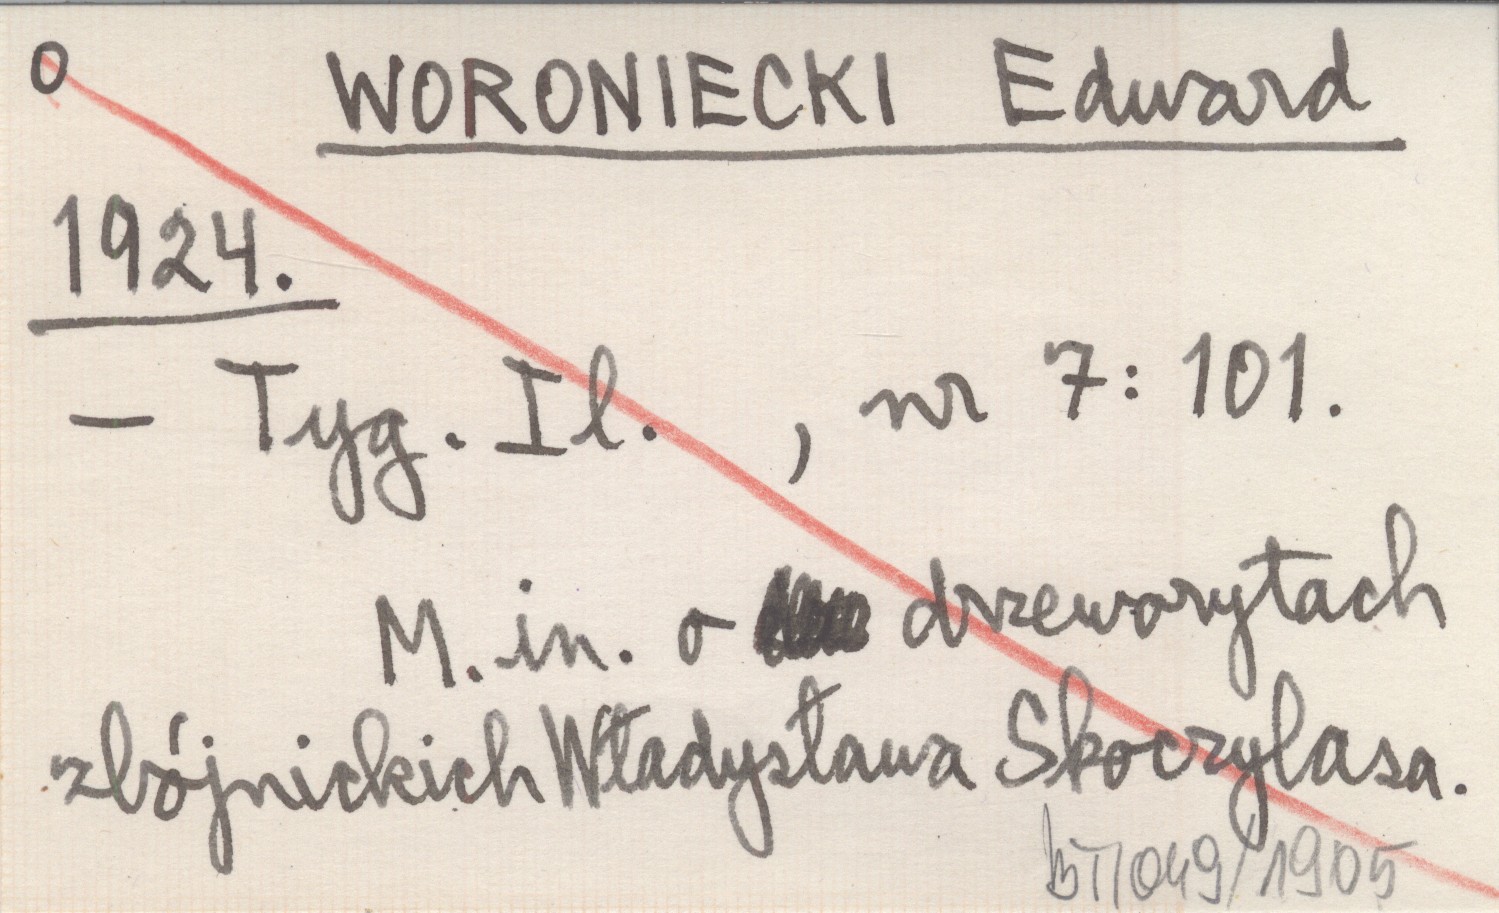 o WORONIECKI Edward
1924.
— Tyg. Il. , nr 7: 101.
M. in. o drzeworytach
zbójnickich Władysława Skoczylasa.
BT/049/1905